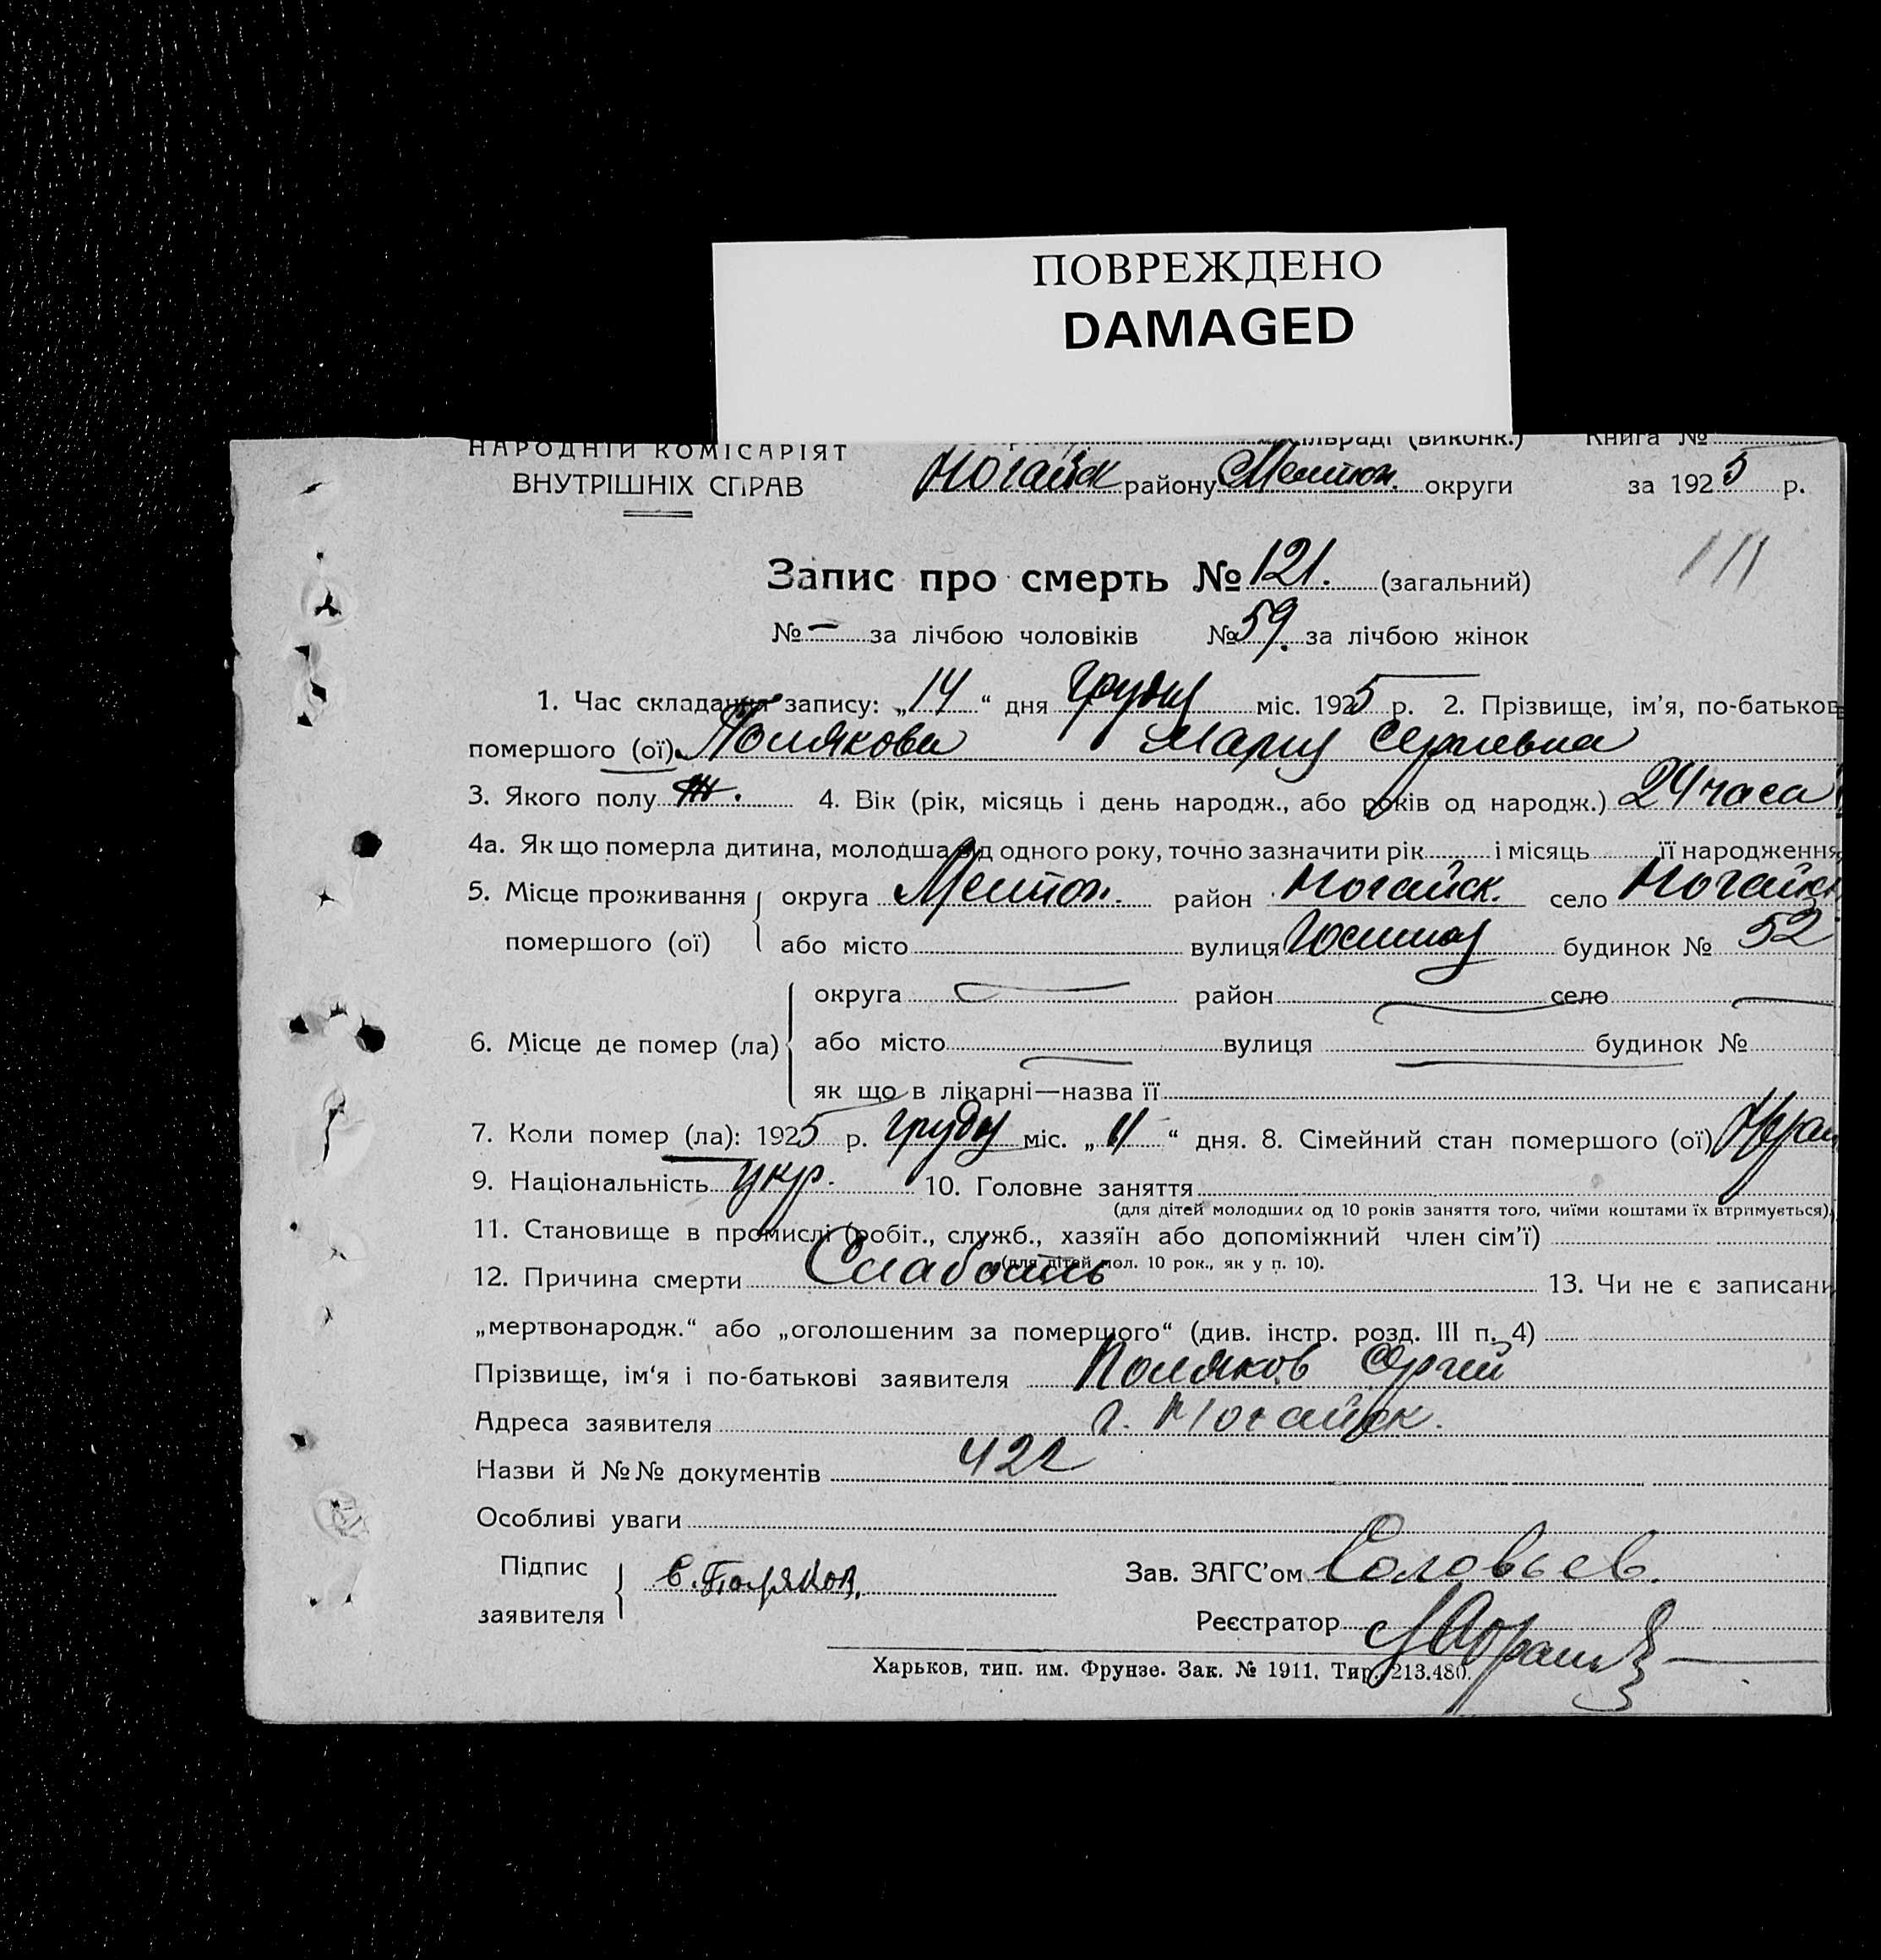 ПОВРЕЖДЕНО
DAMAGED
НАРОДНІЙ КОМІСАРІЯТ (виконк.) Книга №
ВНУТРІШНІХ СПРАВ Ногайск району Мелитоп. округи за 1925 р.
111
Запис про смерть № 121. (загальний)
№ — за лічбою чоловіків № 59. за лічбою жінок
1. Час складання запису: „14“ дня грудня міс. 1925 р. 2. Прізвище, ім'я, по-батьков
помершого (ої) Полякова Мария Сергиевна
3. Якого полу Ж. 4. Вік (рік, місяць і день народж., або років од народж.) 24 часа
4а. Як що померла дитина, молодша від одного року, точно зазначити рік і місяць її народження
5. Місце проживання округа Мелитоп. район Ногайск. село Ногайск
помершого (ої) або місто вулиця будинок № 52
округа район село
6. Місце де помер (ла) або місто вулиця будинок №
як що в лікарні—назва її
7. Коли помер (ла): 1925 р. грудня міс. „11“ дня. 8. Сімейний стан помершого (ої)
9. Національність укр. 10. Головне заняття
(для дітей молодших од 10 років заняття того, чиїми коштами їх втримується)
11. Становище в промислі (робіт., служб., хазяїн або допоміжний член сім'ї)
(для дітей мол. 10 рок., як у п. 10).
12. Причина смерти Слабость 13. Чи не є записани
„мертвонародж.“ або „оголошеним за померщого“ (див. інстр. розд. III п. 4)
Прізвище, ім'я і по-батькові заявителя Поляков Сергий
Адреса заявителя г. Ногайск.
Назви й №№ документів 422
Особливі уваги
Підпис заявителя С. Поляков. Зав. ЗАГС'ом Соловьев.
Реєстратор
Харьков, тип. им. Фрунзе. Зак. № 1911. Тир. 213.480.